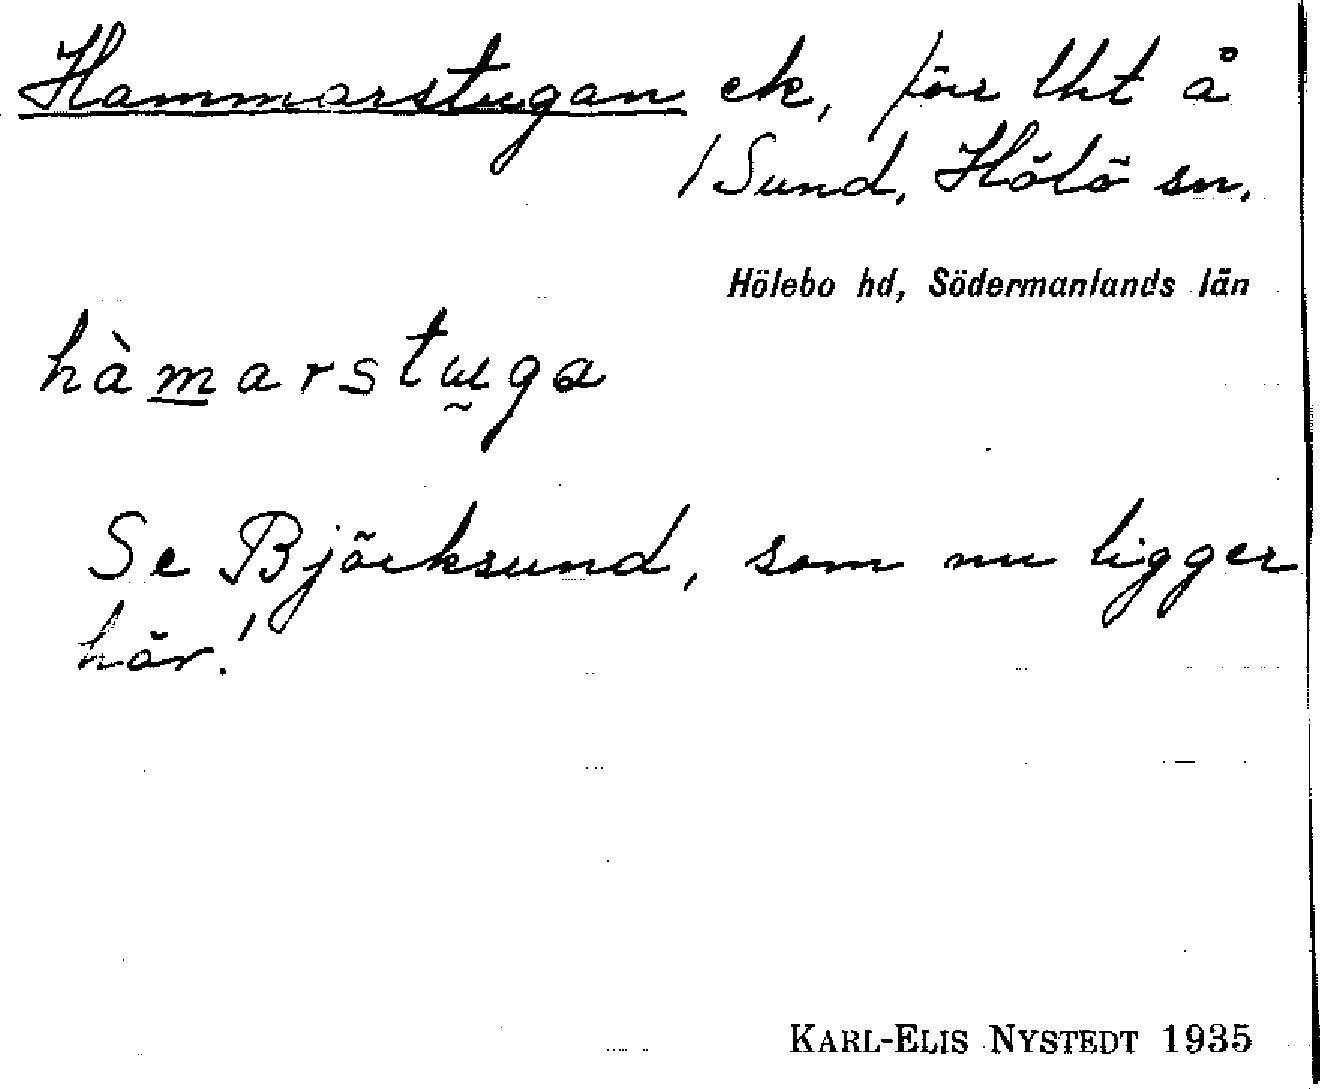 Hammarstugan ek, för lht å
/Sund, Hölö sn.
Hölebo hd, Södermanlands län
hàmarstuga
Se Björksund, som nu ligger
här!
KARL-ELIS NYSTEDT 1935